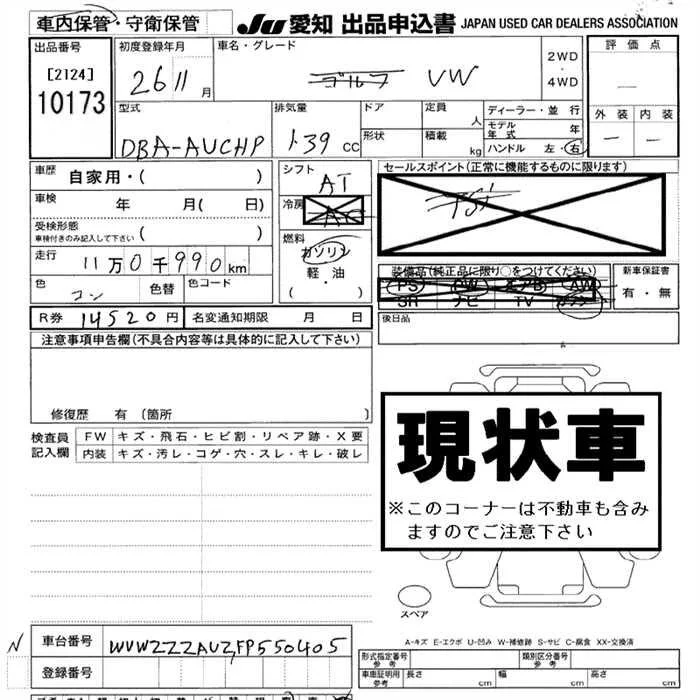 車内保管・守衛保管
JU 愛知 出品申込書 JAPAN USED CAR DEALERS ASSOCIATION
出品番号
[2124]
10173
初度登録年月
26 11月
車名・グレード
ゴルフ VW
2WD
・
4WD
評価点
—
外装 内装
— —
型式
DBA-AUCHP
排気量
1.39 cc
ドア
形状
定員 人
積載 kg
ディーラー・並行
モデル年式 年
ハンドル 左・右
車歴 自家用・( )
車検 年 月( 日)
受検形態
車検付きのみ記入して下さい ( )
走行 11万0千990km
色 コン 色替 色コード
シフト AT
冷房 AC
燃料
ガソリン
軽・油
( ・ )
セールスポイント(正常に機能するものに限ります)
TSi
装備品(純正品に限り○をつけてください)
PS PW エアB AW
SR ナビ TV カワ
新車保証書
有・無
R券 14520円 名変通知期限 月 日
後日品
注意事項申告欄(不具合内容等は具体的に記入して下さい)
修復歴 有 (箇所 )
検査員
記入欄
FW キズ・飛石・ヒビ割・リペア跡・X要
内装 キズ・汚レ・コゲ・穴・スレ・キレ・破レ
現状車
※このコーナーは不動車も含み
ますのでご注意下さい
スペア
A-キズ E-エクボ U-凹み W-補修跡 S-サビ C-腐食 XX-交換済
N 車台番号 WVWZZZAUZFP550405
登録番号
形式指定番号
参考
類別区分番号
参考
車庫証明用
参考
長さ cm 幅 cm 高さ cm